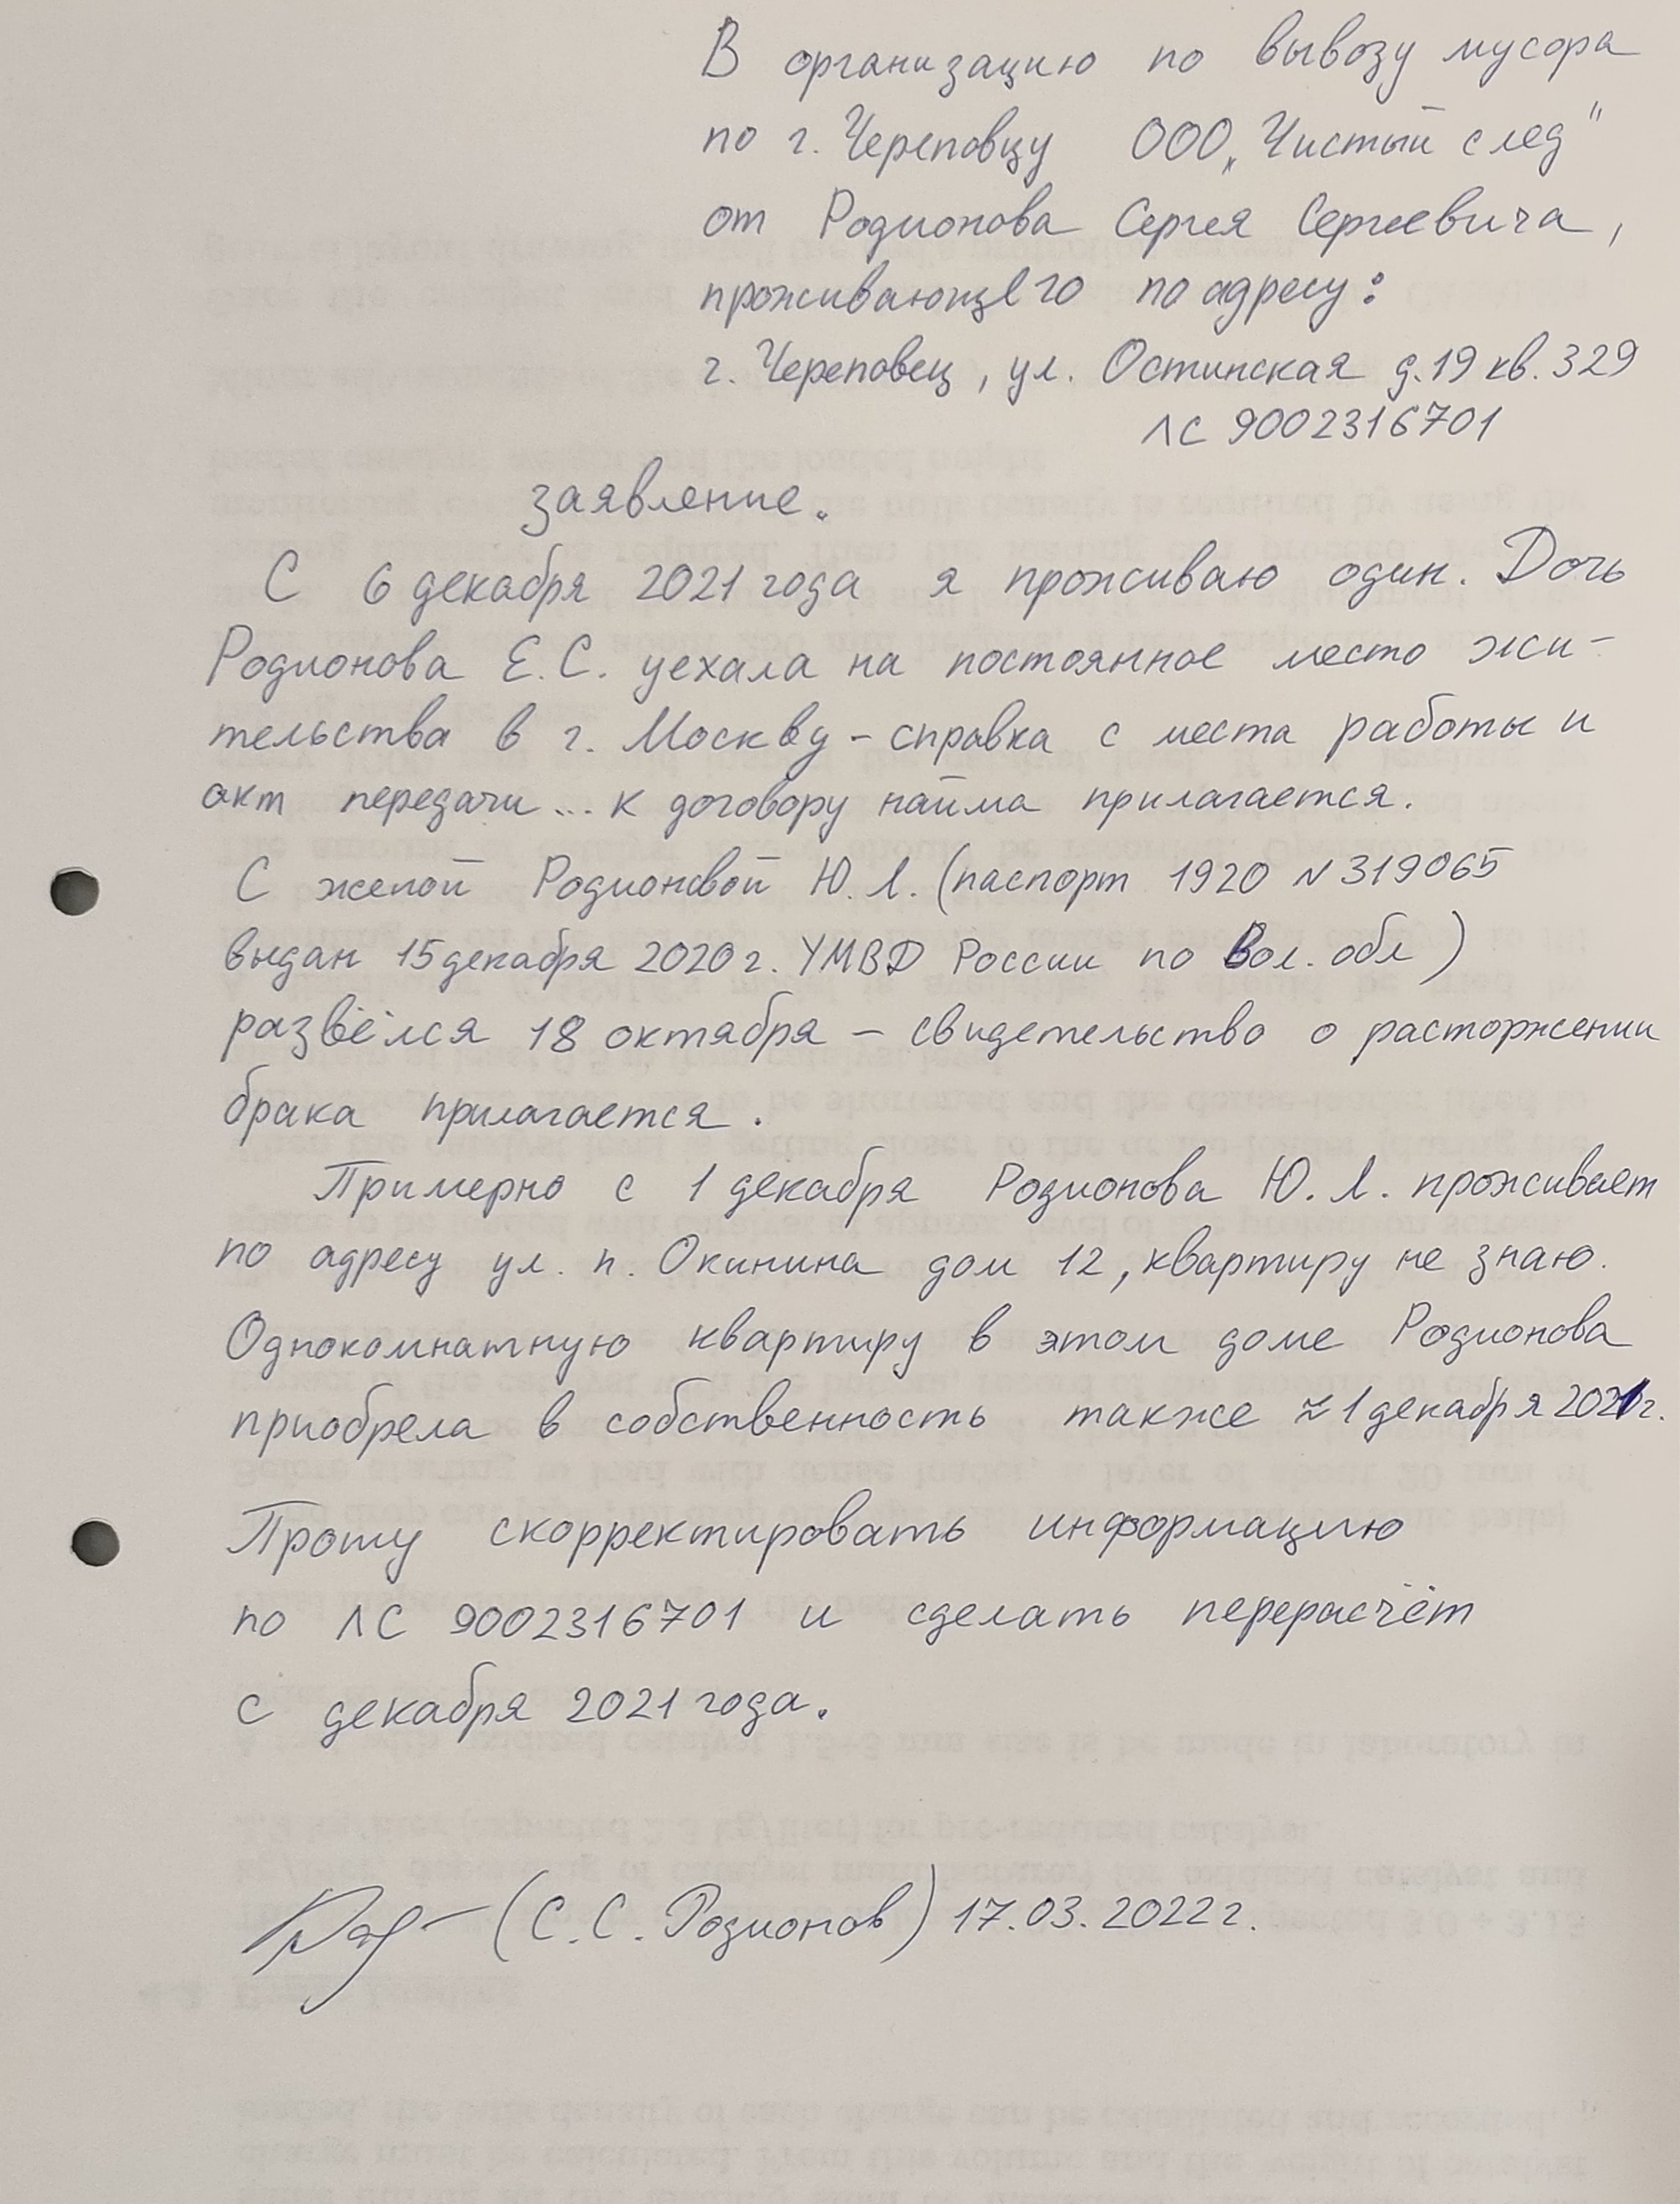 В организацию по вывозу мусора
по г. Череповцу ООО „Чистый след"
от Родионова Сергея Сергеевича,
проживающего по адресу:
г. Череповец, ул. Остинская д.19 кв.329
ЛС 9002316701
заявление.
С 6 декабря 2021 года я проживаю один. Дочь
Родионова Е.С. уехала на постоянное место жи-
тельства в г. Москву - справка с места работы и
акт передачи ... к договору найма прилагается.
С женой Родионовой Ю.Л. (паспорт 1920 N 319065
выдан 15 декабря 2020 г. УМВД России по Вол. обл)
развёлся 18 октября - свидетельство о расторжении
брака прилагается.
Примерно с 1 декабря Родионова Ю.Л. проживает
по адресу ул. п. Окинина дом 12, квартиру не знаю.
Однокомнатную квартиру в этом доме Родионова
приобрела в собственность также ≈ 1 декабря 2021г.
Прошу скорректировать информацию
по ЛС 9002316701 и сделать перерасчёт
с декабря 2021 года.
(С.С. Родионов) 17.03.2022 г.